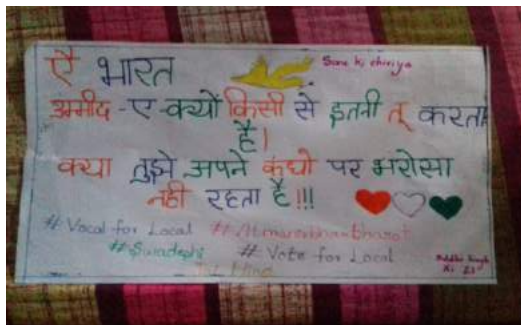 ऐ भारत Sone ki chiriya
उमीद -ए-क्यों किसी से इतनी तू करता
है।
क्या तुझे अपने कंधो पर भरोसा
नही रहता है!!!
# Vocal for Local #Atmanirbhar Bharat
#Swadeshi # Vote for Local
Jai Hind
Singh
XI